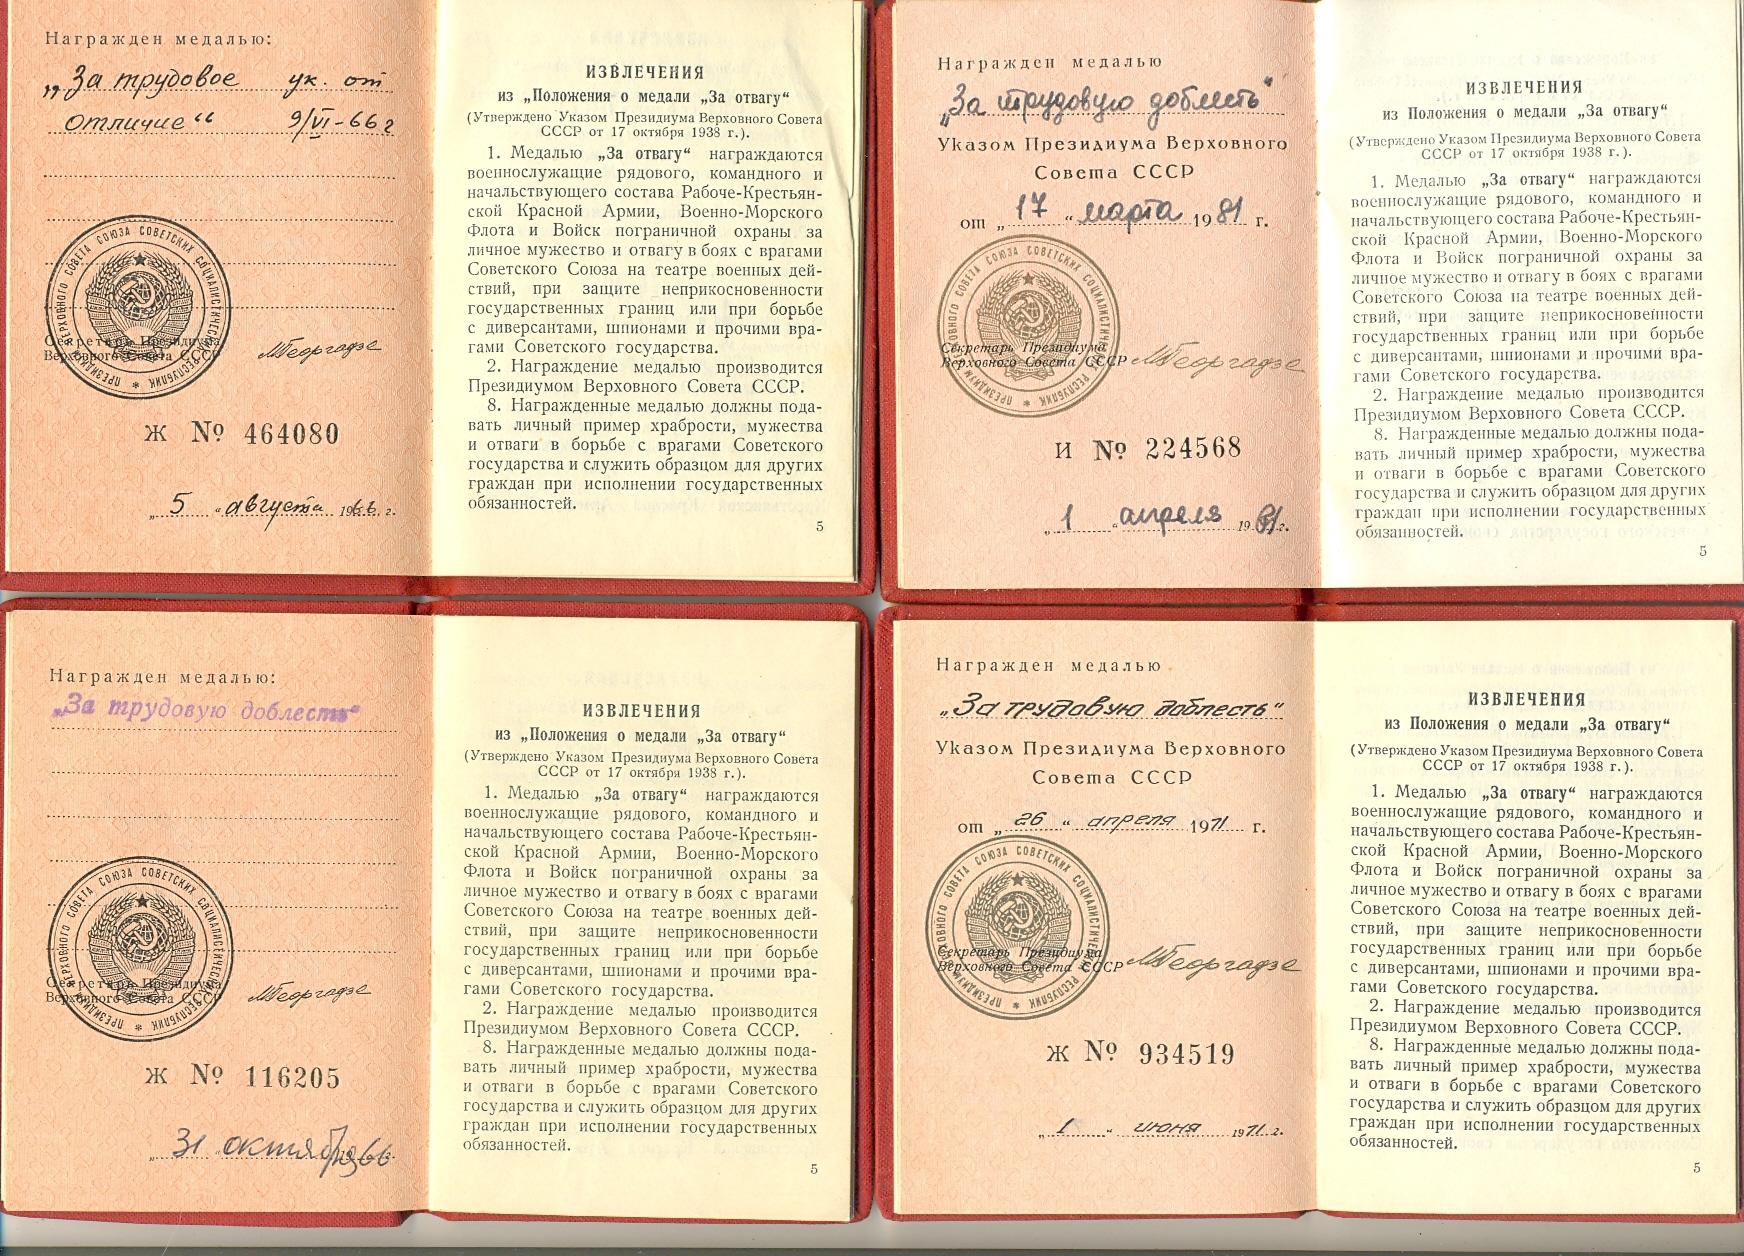 Награжден медалью:
„За трудовое ук. от
отличие“ 9/VI-66 г
ПРЕЗИДИУМ ВЕРХОВНОГО СОВЕТА СОЮЗА СОВЕТСКИХ СОЦИАЛИСТИЧЕСКИХ РЕСПУБЛИК *
Секретарь Президиума
Верховного Совета СССР
МГеоргадзе
Ж № 464080
„ 5 “ августа 1966. г.
ИЗВЛЕЧЕНИЯ
из „Положения о медали „За отвагу“
(Утверждено Указом Президиума Верховного Совета
СССР от 17 октября 1938 г.).
1. Медалью „За отвагу“ награждаются
военнослужащие рядового, командного и
начальствующего состава Рабоче-Крестьян-
ской Красной Армии, Военно-Морского
Флота и Войск пограничной охраны за
личное мужество и отвагу в боях с врагами
Советского Союза на театре военных дей-
ствий, при защите неприкосновенности
государственных границ или при борьбе
с диверсантами, шпионами и прочими вра-
гами Советского государства.
2. Награждение медалью производится
Президиумом Верховного Совета СССР.
8. Награжденные медалью должны пода-
вать личный пример храбрости, мужества
и отваги в борьбе с врагами Советского
государства и служить образцом для других
граждан при исполнении государственных
обязанностей.
5
Награжден медалью
„За трудовую доблесть“
Указом Президиума Верховного
Совета СССР
от „ 17 “ марта 1981 г.
ПРЕЗИДИУМ ВЕРХОВНОГО СОВЕТА СОЮЗА СОВЕТСКИХ СОЦИАЛИСТИЧЕСКИХ РЕСПУБЛИК *
Секретарь Президиума
Верховного Совета СССР
МГеоргадзе
И № 224568
„ 1 “ апреля 1981 г.
ИЗВЛЕЧЕНИЯ
из Положения о медали „За отвагу“
(Утверждено Указом Президиума Верховного Совета
СССР от 17 октября 1938 г.).
1. Медалью „За отвагу“ награждаются
военнослужащие рядового, командного и
начальствующего состава Рабоче-Крестьян-
ской Красной Армии, Военно-Морского
Флота и Войск пограничной охраны за
личное мужество и отвагу в боях с врагами
Советского Союза на театре военных дей-
ствий, при защите неприкосновенности
государственных границ или при борьбе
с диверсантами, шпионами и прочими вра-
гами Советского государства.
2. Награждение медалью производится
Президиумом Верховного Совета СССР.
8. Награжденные медалью должны пода-
вать личный пример храбрости, мужества
и отваги в борьбе с врагами Советского
государства и служить образцом для других
граждан при исполнении государственных
обязанностей.
5
Награжден медалью:
„За трудовую доблесть“
ПРЕЗИДИУМ ВЕРХОВНОГО СОВЕТА СОЮЗА СОВЕТСКИХ СОЦИАЛИСТИЧЕСКИХ РЕСПУБЛИК *
Секретарь Президиума
Верховного Совета СССР
МГеоргадзе
Ж № 116205
„ 31 “ октября 1966
ИЗВЛЕЧЕНИЯ
из „Положения о медали „За отвагу“
(Утверждено Указом Президиума Верховного Совета
СССР от 17 октября 1938 г.).
1. Медалью „За отвагу“ награждаются
военнослужащие рядового, командного и
начальствующего состава Рабоче-Крестьян-
ской Красной Армии, Военно-Морского
Флота и Войск пограничной охраны за
личное мужество и отвагу в боях с врагами
Советского Союза на театре военных дей-
ствий, при защите неприкосновенности
государственных границ или при борьбе
с диверсантами, шпионами и прочими вра-
гами Советского государства.
2. Награждение медалью производится
Президиумом Верховного Совета СССР.
8. Награжденные медалью должны пода-
вать личный пример храбрости, мужества
и отваги в борьбе с врагами Советского
государства и служить образцом для других
граждан при исполнении государственных
обязанностей.
5
Награжден медалью
„За трудовую доблесть“
Указом Президиума Верховного
Совета СССР
от „ 26 “ апреля 1971 г.
ПРЕЗИДИУМ ВЕРХОВНОГО СОВЕТА СОЮЗА СОВЕТСКИХ СОЦИАЛИСТИЧЕСКИХ РЕСПУБЛИК *
Секретарь Президиума
Верховного Совета СССР
МГеоргадзе
Ж № 934519
„ 1 “ июня 1971 г.
ИЗВЛЕЧЕНИЯ
из Положения о медали „За отвагу“
(Утверждено Указом Президиума Верховного Совета
СССР от 17 октября 1938 г.).
1. Медалью „За отвагу“ награждаются
военнослужащие рядового, командного и
начальствующего состава Рабоче-Крестьян-
ской Красной Армии, Военно-Морского
Флота и Войск пограничной охраны за
личное мужество и отвагу в боях с врагами
Советского Союза на театре военных дей-
ствий, при защите неприкосновенности
государственных границ или при борьбе
с диверсантами, шпионами и прочими вра-
гами Советского государства.
2. Награждение медалью производится
Президиумом Верховного Совета СССР.
8. Награжденные медалью должны пода-
вать личный пример храбрости, мужества
и отваги в борьбе с врагами Советского
государства и служить образцом для других
граждан при исполнении государственных
обязанностей.
5